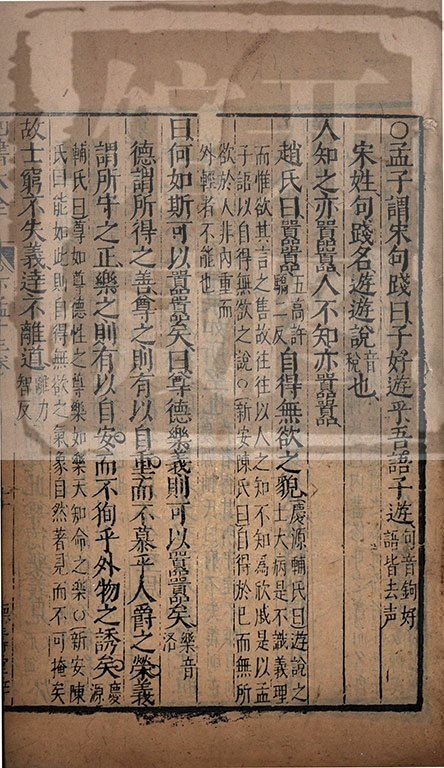 ○孟子謂宋句踐曰子好遊乎吾語子遊句音鉤好
語皆去聲
宋姓句踐名遊遊說音
稅也
人知之亦囂囂人不知亦囂囂
趙氏曰囂囂五高許
驕二反自得無欲之貌慶源輔氏曰遊說之
士大病是不識義理
而惟欲其言之售故往往以人之知不知為欣戚是以
子語以自得無欲之說○新安陳氏曰自得於已而無所
欲於人非內重而
外輕者不能也
曰何如斯可以囂囂矣曰尊德樂義則可以囂囂矣樂音
洛
德謂所得之善尊之則有以自重而不慕乎人爵之榮義
謂所守之正樂之則有以自安而不徇乎外物之誘矣慶
源
輔氏曰尊如尊德性之尊樂如樂天知命之樂○新安陳
氏曰能如此則自得無欲之氣象自然著見而不可掩矣
故士窮不失義達不離道離力
智反